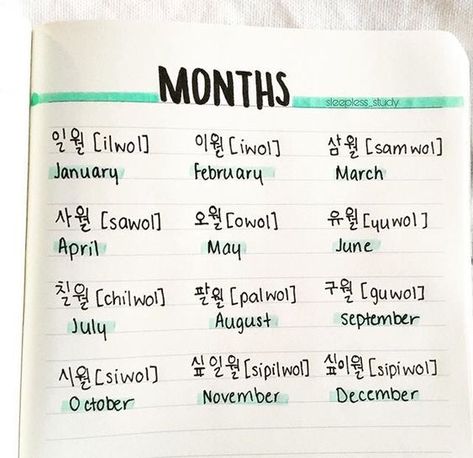 MONTHS
sleepless_study
일월 [ilwol] 이월 [iwol] 삼월 [samwol]
January February March
사월 [sawol] 오월 [owol] 유월 [yuwol]
April May June
칠월 [chilwol] 팔월 [palwol] 구월 [guwol]
July August september
시월 [siwol] 싶일월 [sipilwol] 싶이월 [sipiwol]
October November December